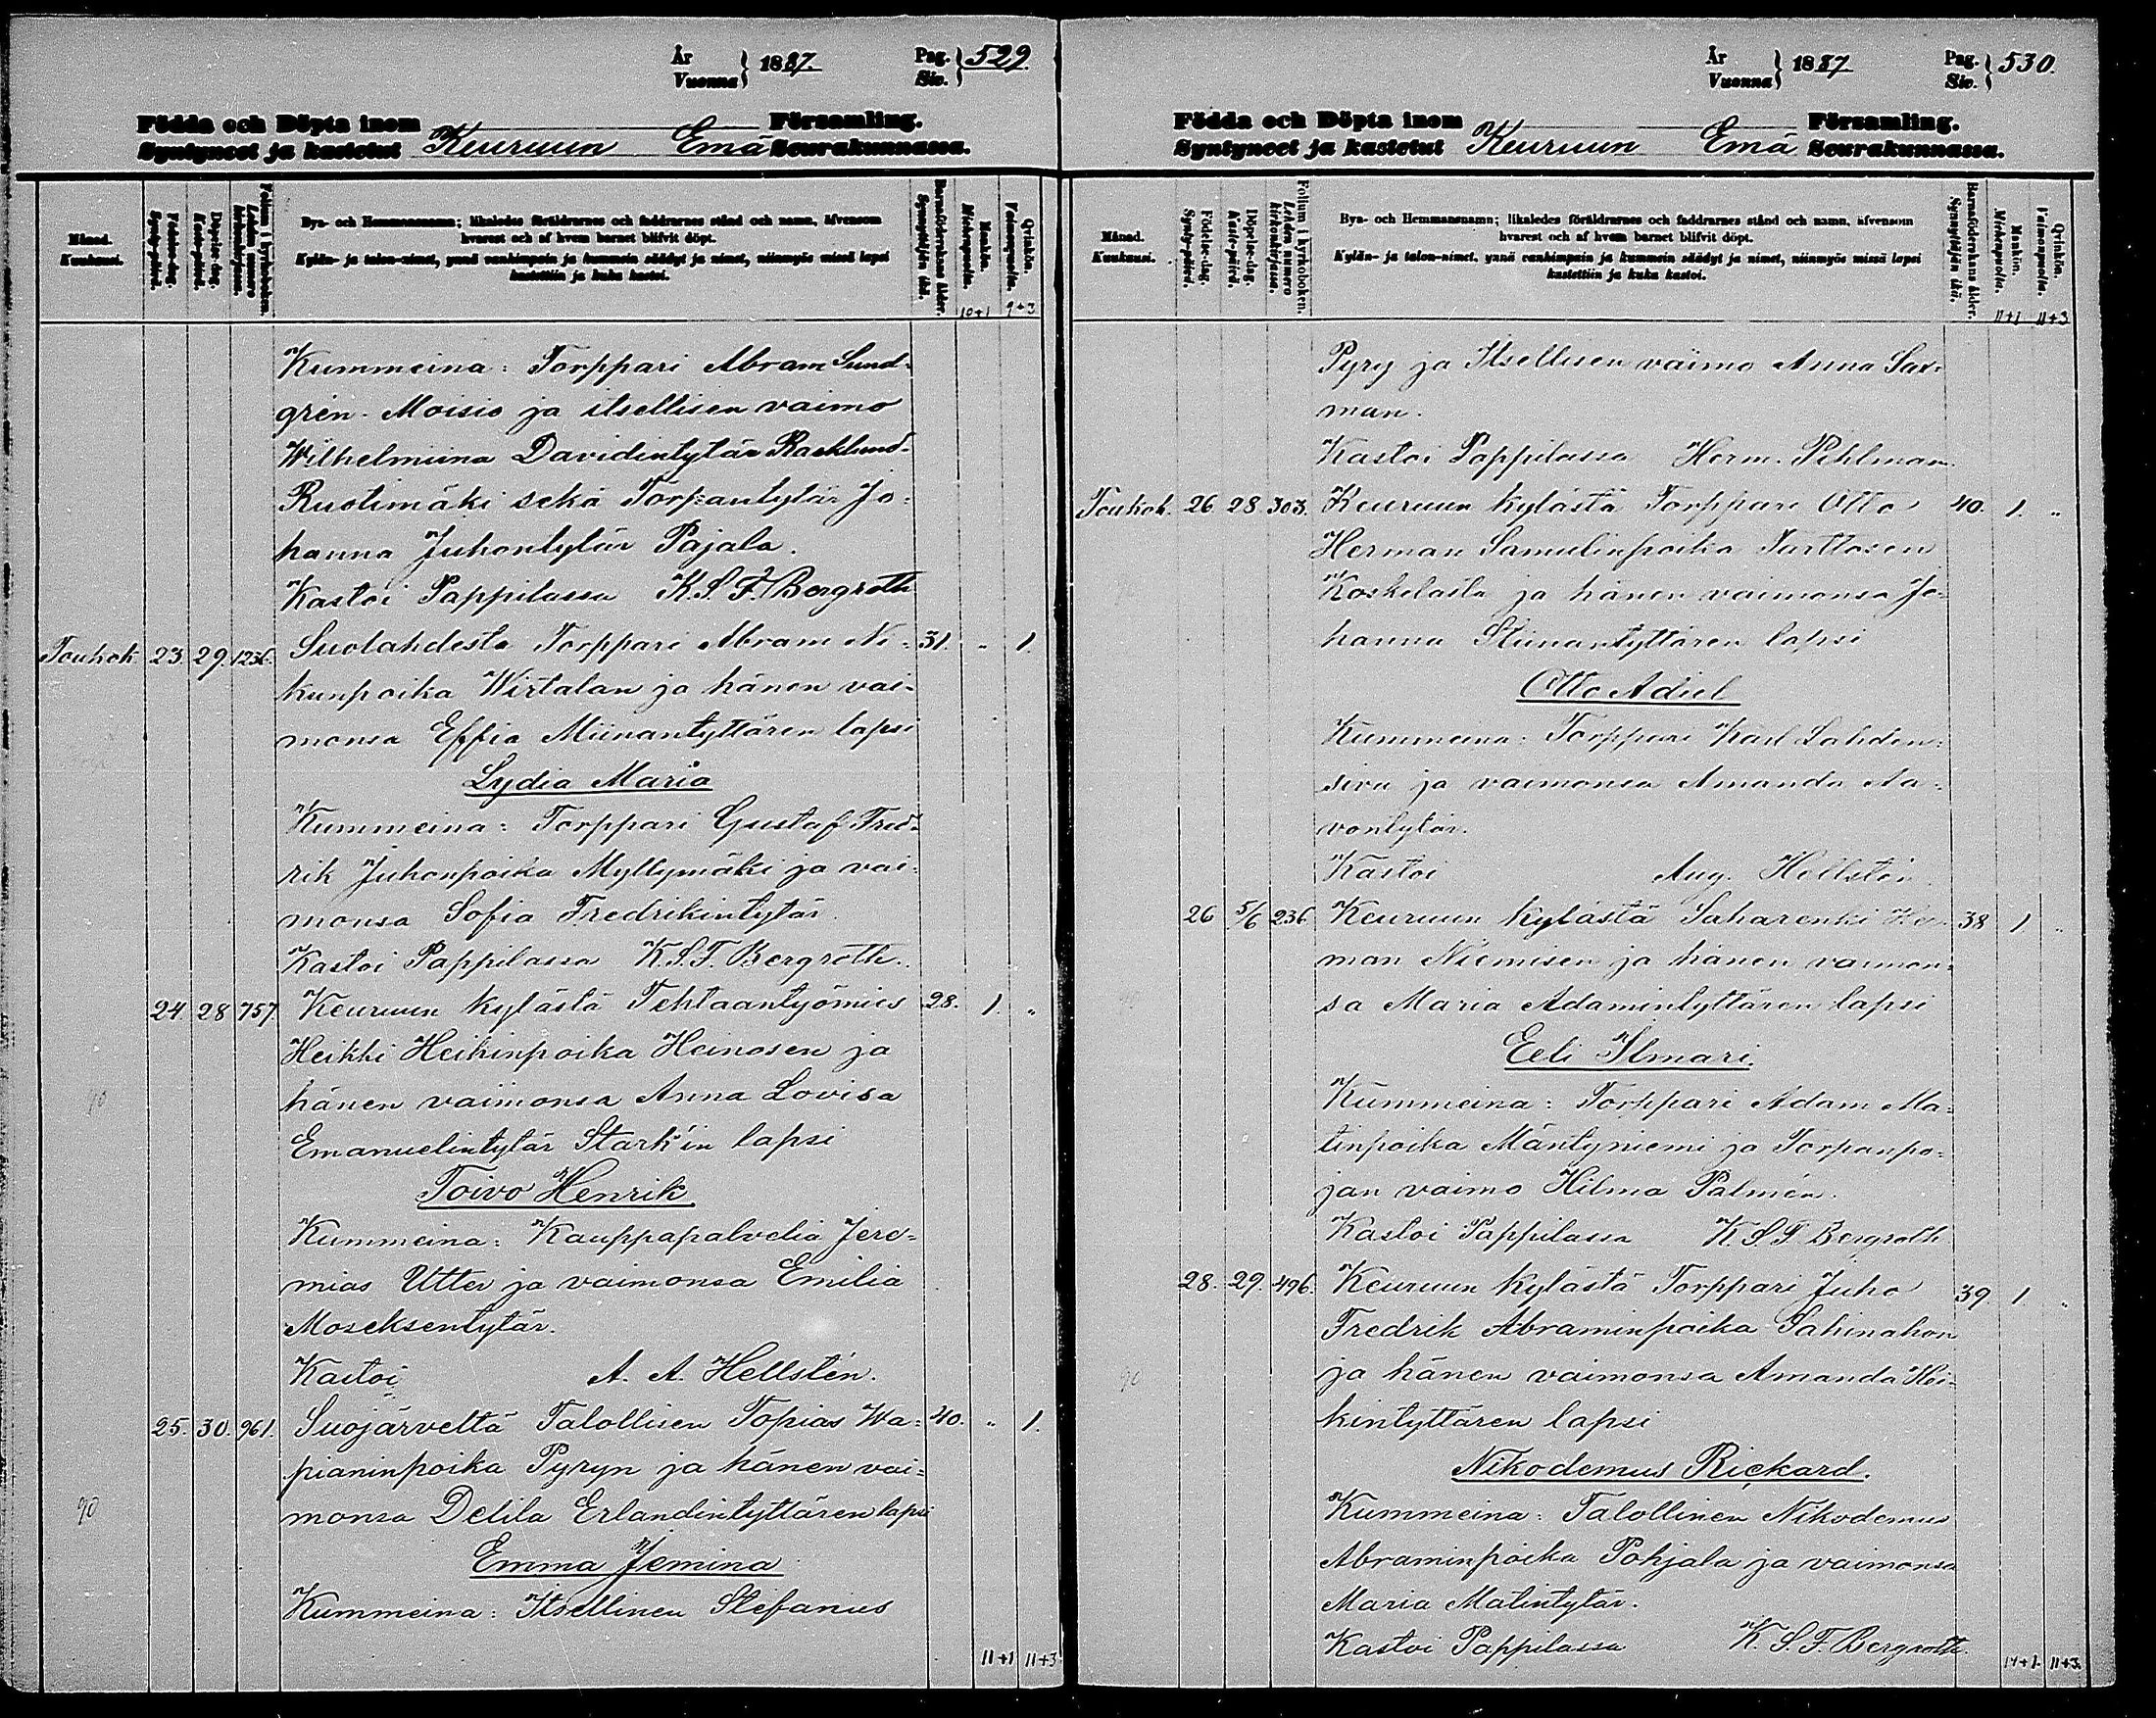 År
Vuonna } 1887.
Pag.
Siv. } 529.
Födda och Döpta inom Församling.
Syntyneet ja kastetut Keuruun Emä Seurakunnassa.
Månad. Kuukausi.
Födelse-dag. Synty-päivä.
Döpelse-dag. Kaste-päivä.
Folium i kyrkoboken. Lehden numero kirkonkirjassa.
Bya- och Hemmansnamn; likaledes föräldrarnes och faddrarnes stånd och namn, äfvensom
hvarest och af hvem barnet blifvit döpt.
Kylän- ja talon-nimet, ynnä vanhimpain ja kummein säädyt ja nimet, niinmyös missä lapsi
kastettiin ja kuka kastoi.
Barnaföderskans ålder. Synnyttäjän ikä.
Mankön. Miehenpuolia.
Qvinkön. Vaimonpuolia.
10+1 9+3
Kummeina: Torppari Abram Sund-
grén-Moisio ja itsellisen vaimo
Wilhelmiina Davidintytär Backlund-
Ruotimäki sekä Torpantytär Jo-
hanna Juhontytär Pajala.
Kastoi Pappilassa K.S.F. Bergroth
Toukok. 23. 29. 1236. Suolahdesta Torppari Abram Ni- 31. " 1.
kunpoika Wirtalan ja hänen vai-
monsa Effia Miinantyttären lapsi
Lydia Maria
Kummeina: Torppari Gustaf Fred-
rik Juhonpoika Myllymäki ja vai-
monsa Sofia Fredrikintytär
Kastoi Pappilassa K.S.F. Bergroth.
24. 28 757. Keuruun kylästä Tehtaantyömies 28. 1. "
Heikki Heikinpoika Heinosen ja
90 hänen vaimonsa Anna Lovisa
Emanuelintytär Stark'in lapsi
Toivo Henrik
Kummeina: Kauppapalvelia Jere-
mias Utter ja vaimonsa Emilia
Moseksentytär.
Kastoi A. A. Hellstén.
25. 30. 961. Suojärveltä Talollisen Topias Wa- 40. " 1.
pianinpoika Pyryn ja hänen vai-
90 monsa Delila Erlandintyttären lapsi
Emma Jemina
Kummeina: Itsellinen Stefanus
11+1 11+3
År
Vuonna } 1887
Pag.
Siv. } 530.
Födda och Döpta inom Församling.
Syntyneet ja kastetut Keuruun Emä Seurakunnassa.
Månad. Kuukausi.
Födelse-dag. Synty-päivä.
Döpelse-dag. Kaste-päivä.
Folium i kyrkoboken. Lehden numero kirkonkirjassa.
Bya- och Hemmansnamn; likaledes föräldrarnes och faddrarnes stånd och namn, äfvensom
hvarest och af hvem barnet blifvit döpt.
Kylän- ja talon-nimet, ynnä vanhimpain ja kummein säädyt ja nimet, niinmyös missä lapsi
kastettiin ja kuka kastoi.
Barnaföderskans ålder. Synnyttäjän ikä.
Mankön. Miehenpuolia.
Qvinkön. Vaimonpuolia.
11+1 11+3
Pyry ja Itsellisen vaimo Anna Sax-
man.
Kastoi Pappilassa Herm. Pihlman.
Toukok. 26. 28. 303. Keuruun kylästä Torppari Otto 40. 1. "
Herman Samulinpoika Turttosen
Koskelasta ja hänen vaimonsa Jo-
hanna Stiinantyttären lapsi
Otto Adiel
Kummeina: Torppari Karl Lahden-
sivu ja vaimonsa Amanda Aa-
rontytär.
Kastoi Aug. Hellstén
26 5/6 236 Keuruun kylästä Saharenki Her- 38 1 "
man Niemisen ja hänen vaimon-
sa Maria Adamintyttären lapsi
Eeli Ilmari.
Kummeina: Torppari Adam Ma-
tinpoika Mäntyniemi ja Torpanpo-
jan vaimo Hilma Palmén.
Kastoi Pappilassa K.S.F. Bergroth
28. 29. 496. Keuruun kylästä Torppari Juho 39. 1. "
Fredrik Abraminpoika Sahinahon
90 ja hänen vaimonsa Amanda Hei-
kintyttären lapsi
Nikodemus Rickard.
Kummeina: Talollinen Nikodemus
Abraminpoika Pohjala ja vaimonsa
Maria Matintytär.
Kastoi Pappilassa K.S.F. Bergroth.
14+1. 11+3.